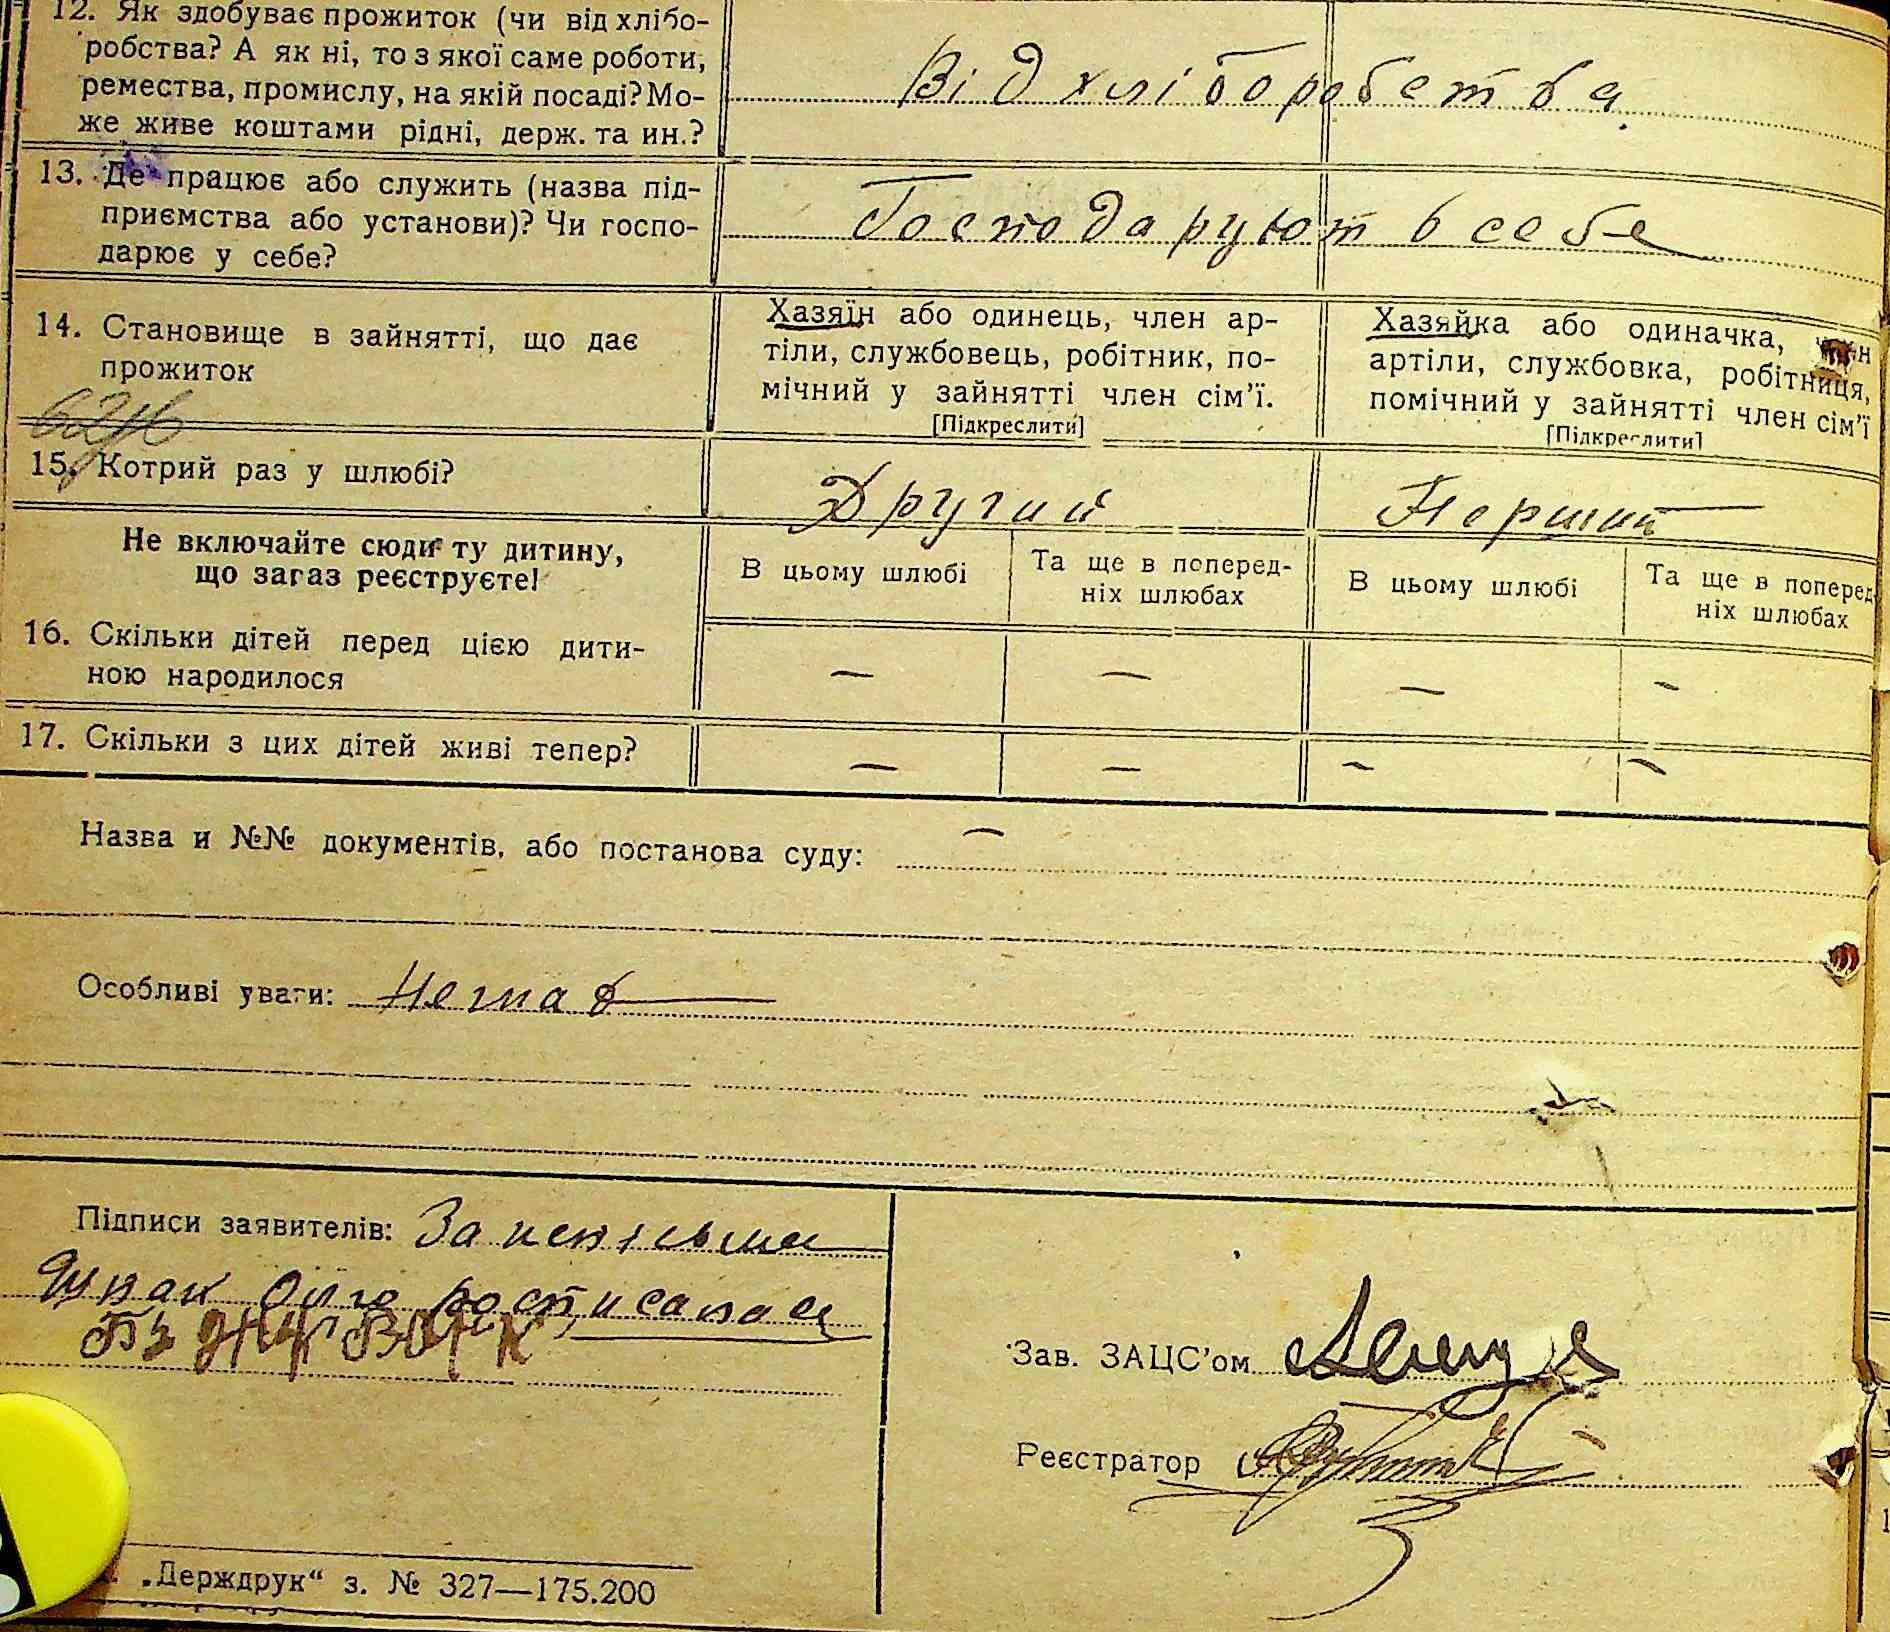 12. Як здобуває прожиток (чи від хлібо-
робства? А як ні, то з якої саме роботи,
ремества, промислу, на якій посаді? Мо-
же живе коштами рідні, держ. та ин.?
Від хліборобства
13. Де працює або служить (назва під-
приємства або установи)? Чи госпо-
дарює у себе?
Господарують в себе
14. Становище в зайнятті, що дає
прожиток
Хазяїн або одинець, член ар-
тіли, службовець, робітник, по-
мічний у зайнятті член сім'ї.
[Підкреслити]
Хазяйка або одиначка, член
артіли, службовка, робітниця,
помічний у зайнятті член сім'ї
[Підкреслити]
15. Котрий раз у шлюбі?
Другий
Перший
Не включайте сюди ту дитину,
що зараз реєструєте!
В цьому шлюбі
Та ще в поперед-
ніх шлюбах
В цьому шлюбі
Та ще в поперед-
ніх шлюбах
16. Скільки дітей перед цією дити-
ною народилося
— — — —
17. Скільки з цих дітей живі тепер?
— — — —
Назва и №№ документів, або постанова суду: —
Особливі уваги: Немає
Підписи заявителів: За неписьм
росписалася
Зав. ЗАЦС'ом
Реєстратор
„Держдрук“ з. № 327—175.200